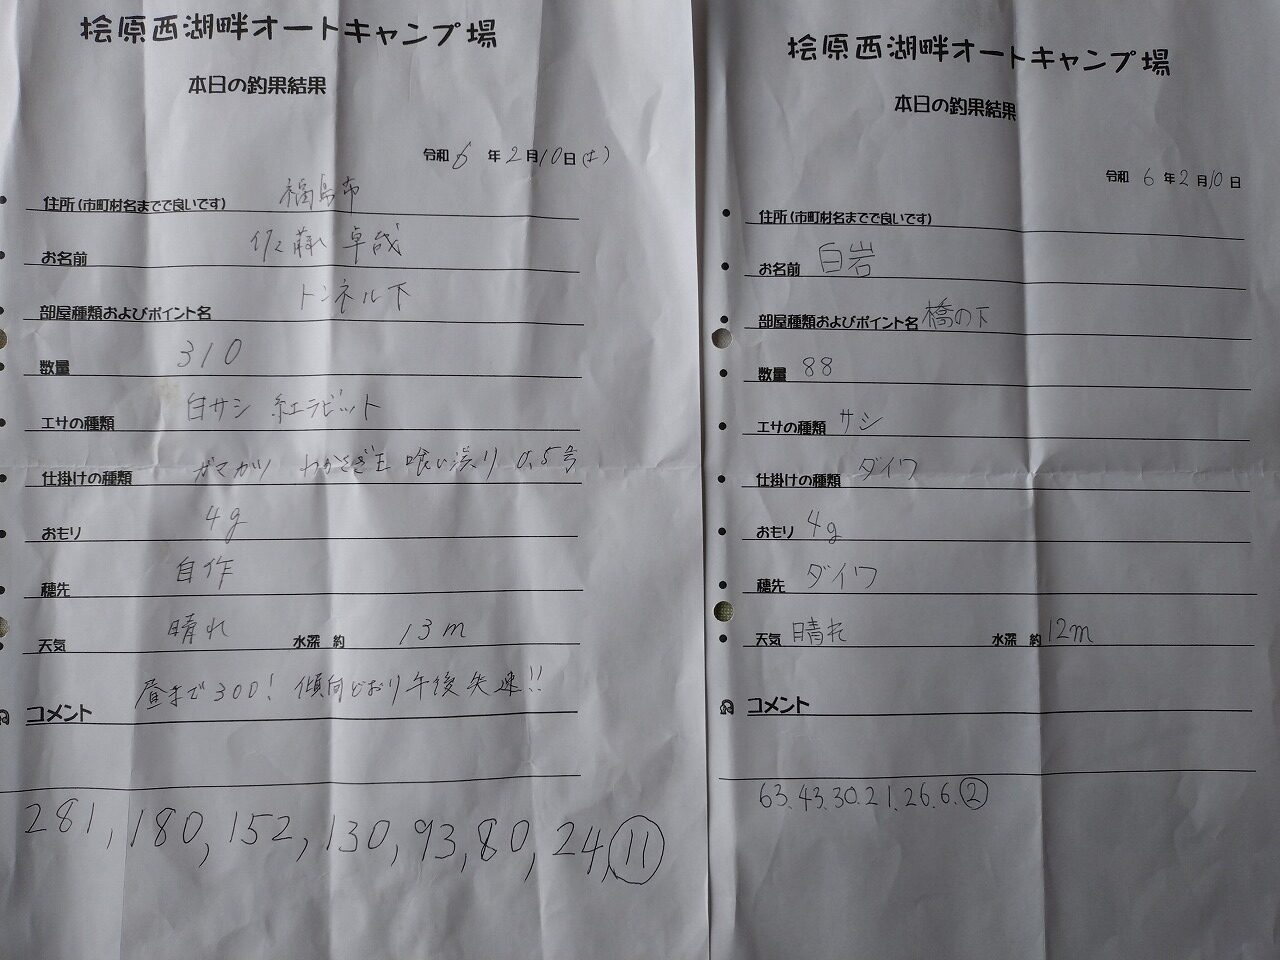 桧原西湖畔オートキャンプ場
本日の釣果結果
令和 6 年 2 月 10 日 (土)
住所(市町村名までで良いです) 福島市
お名前 佐藤 卓哉
部屋種類およびポイント名 トンネル下
数量 310
エサの種類 白サシ 紅ラビット
仕掛けの種類 ガマカツ わかさぎ王 喰い渋り 0.5号
おもり 4g
穂先 自作
天気 晴れ 水深 約 13m
コメント 昼まで300! 傾向どおり午後失速!!
281, 180, 152, 130, 93, 80, 24, ⑪
桧原西湖畔オートキャンプ場
本日の釣果結果
令和 6 年 2 月 10 日
住所(市町村名までで良いです)
お名前 白岩
部屋種類およびポイント名 橋の下
数量 88
エサの種類 サシ
仕掛けの種類 ダイワ
おもり 4g
穂先 ダイワ
天気 晴れ 水深 約 12m
コメント
63.43.30.21.26.6.②